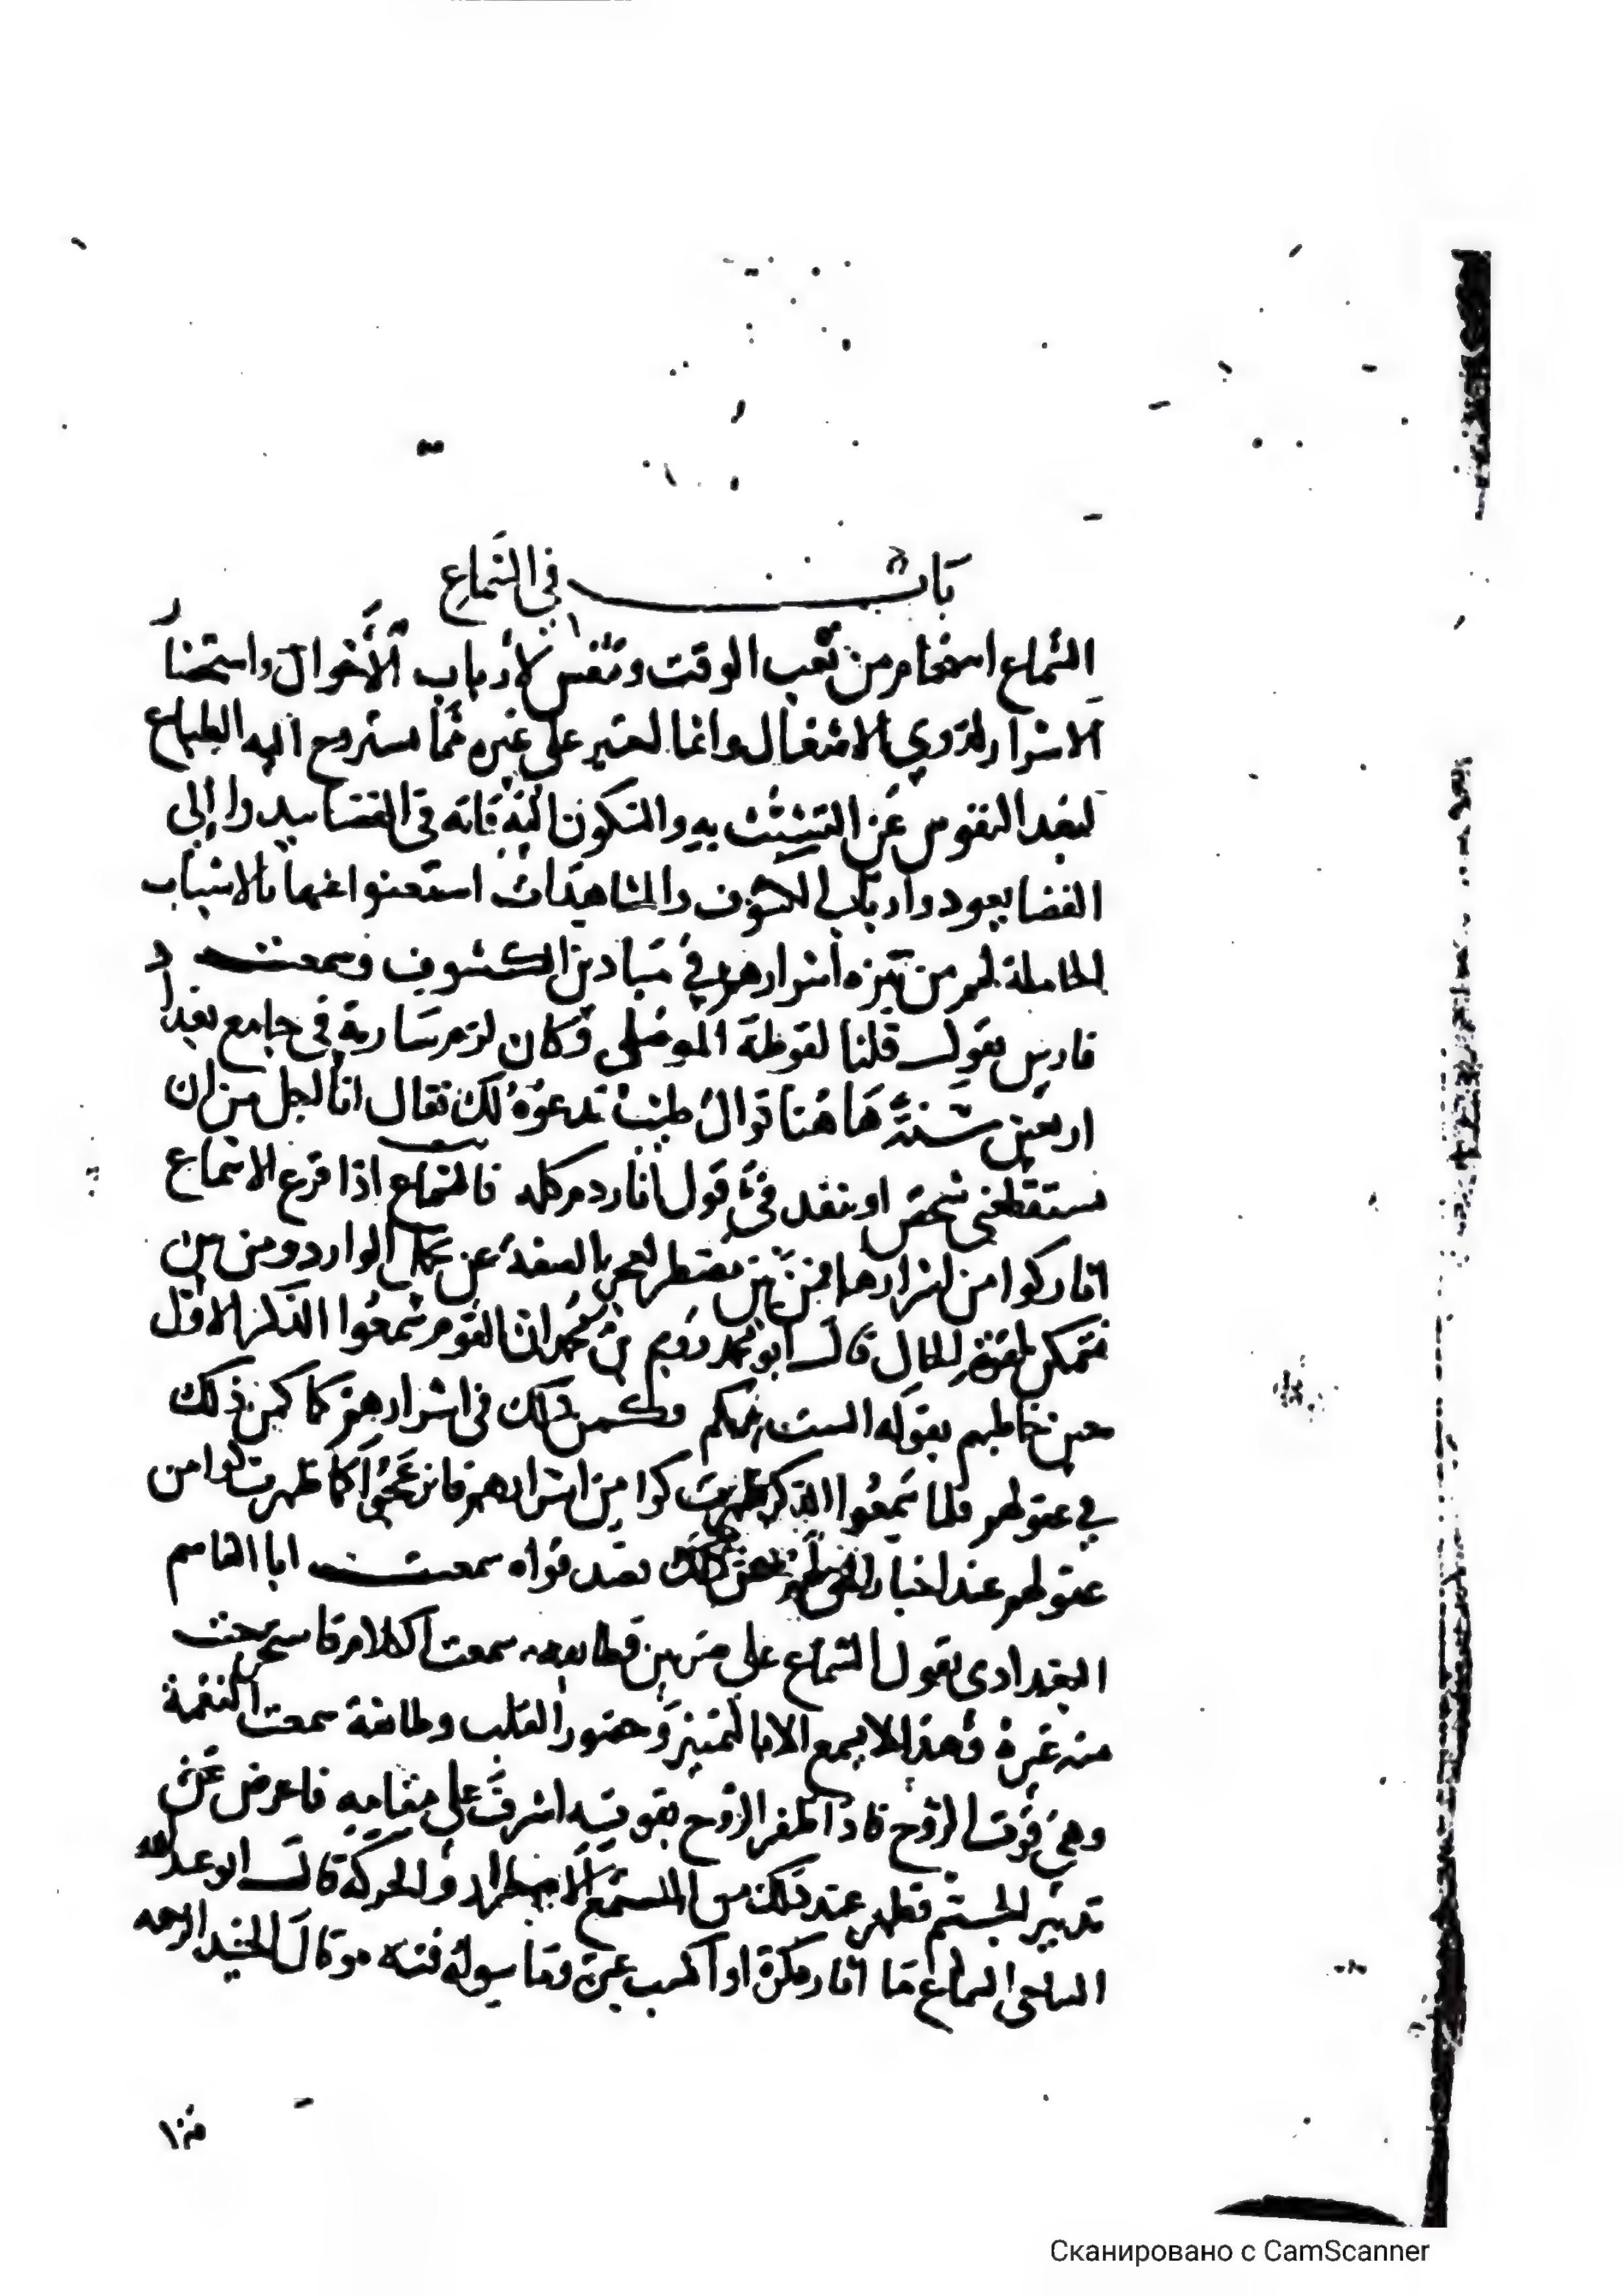 باب في السماع
السماع استجمام من تعب الوقت وتنفس لأرباب الأحوال واستحضار
الاسرار لذوي الاشغال وانما اختير على غيره مما تستروح اليه الطباع
لبعد النفوس عن التشبث به والسكون اليه فانه في القضا يبدوا إلى
القضا يعود وارباب الكشوف والمشاهدات استغنوا عنها بالاسباب
الحاملة لهم من تنزه اسرارهم في ميادين الكشوف وسمعت
فارس يقول قلنا لقوطة الموصلي وكان لزم سارية في جامع بغداد
اربعين سنة هاهنا قوال طيب ندعوه لك فقال انا اجل من ان
يستقطعني شخص او ينفذ في قول انا ردم كله فالسماع اذا قرع الاسماع
اثار كوامن اسرارها فمن بين مضطر لعجز الصفة عن حمل الوارد ومن بين
متمكن بقوة الحال قال ابو محمد رويم بن محمد ان القوم سمعوا الذكر الاول
حين خاطبهم بقوله الست بربكم وكمن ذلك في اسرارهم كما كمن ذلك
في عقولهم فلما سمعوا الذكر ظهرت كوامن اسرارهم فانزعجوا كما ظهرت كوامن
عقولهم عند اخبار الحق لهم عن ذلك فصدقوا سمعت ابا القاسم
البغدادي يقول السماع على ضربين فطايفه سمعت الكلام فاستخرجت
منه عبرة وهذا لا يسمع الا بالتمييز وحضور القلب وطائفة سمعت النغمة
وهي قوت الروح فاذا ظفر الروح بقوته اشرف على مقامه فاعرض عن
تدبير الجسم فظهر عند ذلك من المستمع الاضطراب والحركة قال ابو عبد الله
النباجي السماع ما اثار فكرة او اكسب عبرة وما سواه فتنه وقال الجنيد الرحمه